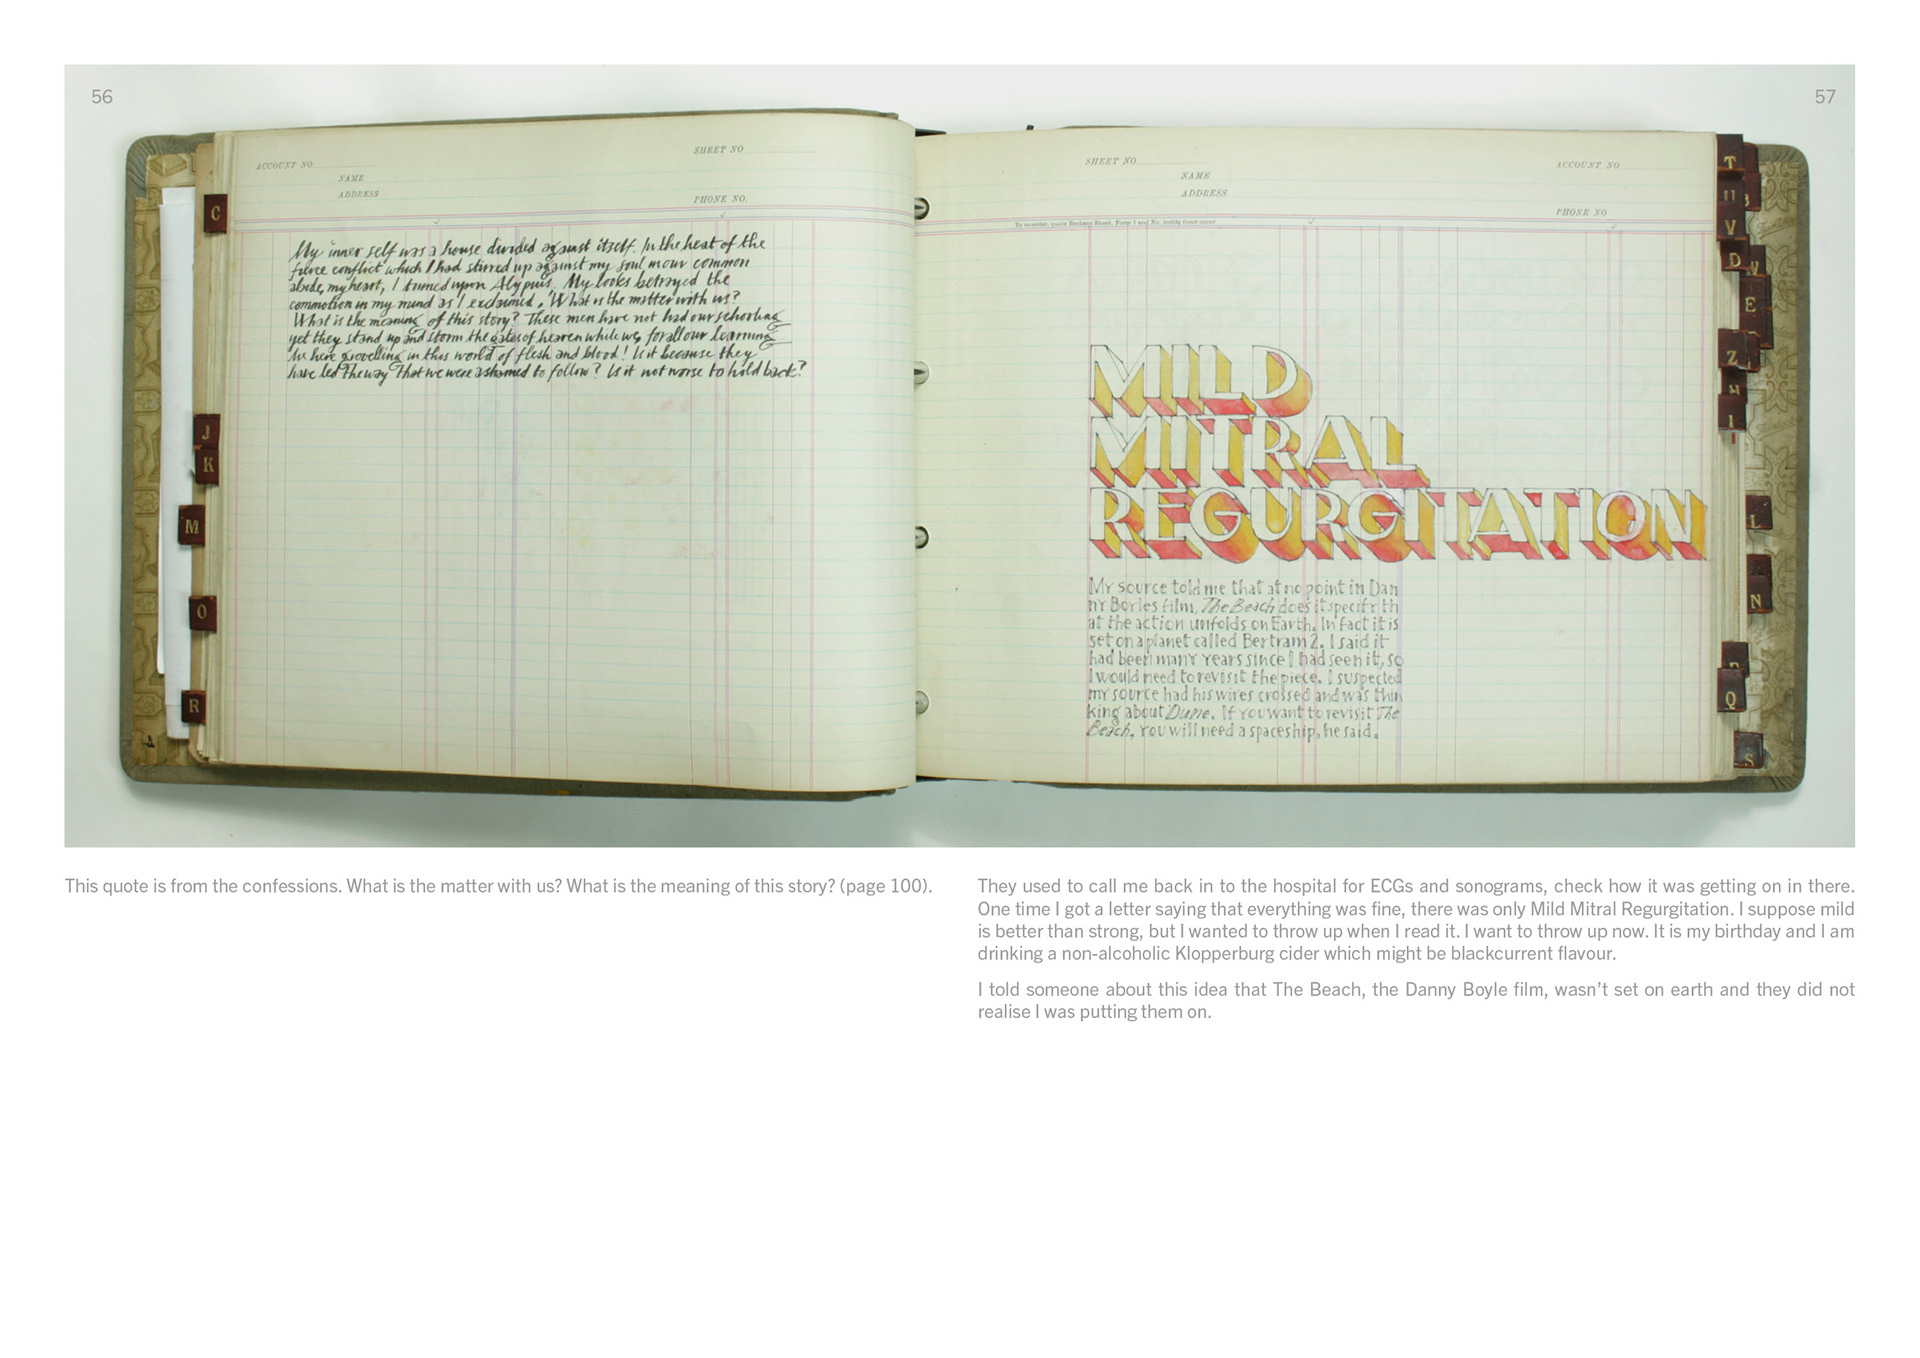 56
57
ACCOUNT NO
SHEET NO
NAME
ADDRESS
PHONE NO.
C
J
K
M
O
R
My inner self was a house divided against itself. In the heat of the
fierce conflict which I had stirred up against my soul in our common
abode, my heart, I turned upon Alypius. My looks betrayed the
commotion in my mind as I exclaimed, 'What is the matter with us?
What is the meaning of this story? These men have not had our schooling
yet they stand up and storm the gates of heaven while we, for all our learning
lie here grovelling in this world of flesh and blood! Is it because they
have led the way that we were ashamed to follow? Is it not worse to hold back?
SHEET NO
ACCOUNT NO
NAME
ADDRESS
PHONE NO
To re-order, quote Sheet, Form 1 and No. inside front cover
MILD
MITRAL
REGURGITATION
My source told me that at no point in Dan
ny Boyles film, The Beach does it specify th
at the action unfolds on Earth. In fact it is
set on a planet called Bertram 2. I said it
had been many years since I had seen it, so
I would need to revisit the piece. I suspected
my source had his wires crossed and was thin
king about Dune. If you want to revisit The
Beach, you will need a spaceship, he said.
T
U
V
D
E
Z
I
L
N
Q
S
This quote is from the confessions. What is the matter with us? What is the meaning of this story? (page 100).
They used to call me back in to the hospital for ECGs and sonograms, check how it was getting on in there.
One time I got a letter saying that everything was fine, there was only Mild Mitral Regurgitation. I suppose mild
is better than strong, but I wanted to throw up when I read it. I want to throw up now. It is my birthday and I am
drinking a non-alcoholic Klopperburg cider which might be blackcurrent flavour.
I told someone about this idea that The Beach, the Danny Boyle film, wasn't set on earth and they did not
realise I was putting them on.